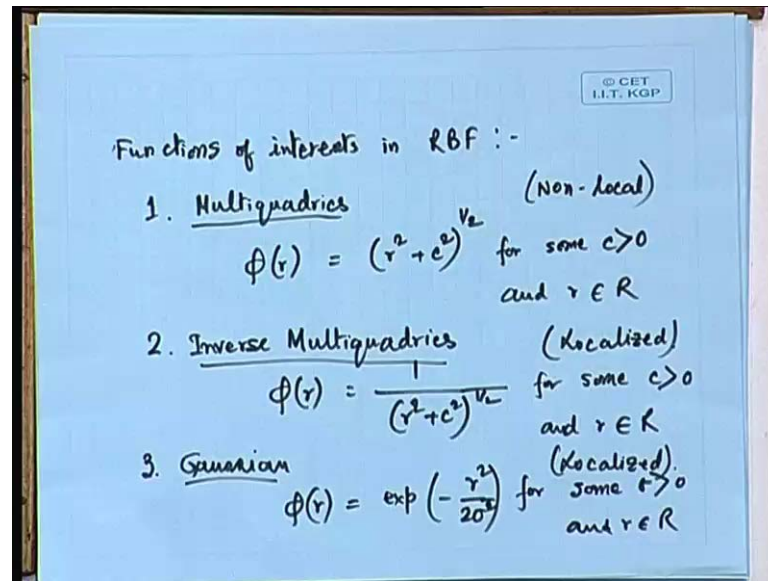 © CET
I.I.T. KGP
Functions of interests in RBF :-
1. Multiquadrics (Non-Local)
φ(r) = (r² + c²)^1/2 for some c>0
and r ∈ R
2. Inverse Multiquadrics (Localized)
φ(r) = 1/(r²+c²)^1/2 for some c>0
and r ∈ R
3. Gaussian (Localized).
φ(r) = exp (- r²/2σ²) for some σ>0
and r ∈ R